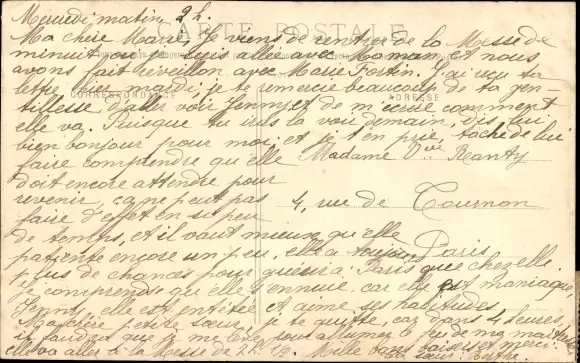 Mercredi matin 2 h.
CARTE POSTALE
Ma chère Marie, je viens de rentrer de la Messe de
minuit où je suis allée avec Maman et nous
avons fait réveillon avec Marie Fortin. J'ai reçu ta
lettre hier mardi, je te remercie beaucoup de ta gen-
CORRESPONDANCE
ADRESSE
tillesse d'aller voir Jenny et de m'écrire comment
elle va. Puisque tu iras la voir demain, dis lui
bien bonjour pour moi, et je t'en prie, tâche de lui
faire comprendre qu'elle
Madame Vve Ranty
doit encore attendre pour
revenir, ça ne peut pas
4, rue de Tournon
faire d'effet en si peu
de temps, et il vaut mieux qu'elle
Paris
patiente encore un peu, elle a toujours
plus de chances pour guérir à Paris que chez elle
je comprends qu'elle s'ennuie, car elle est maniaque,
Jenny, elle est entêtée et aime ses habitudes.
Ma chère petite sœur, je te quitte, car dans 4 heures,
il faudra que je me lève pour allumer le feu de ma
elle va aller à la Messe de Mille bons baisers et merci